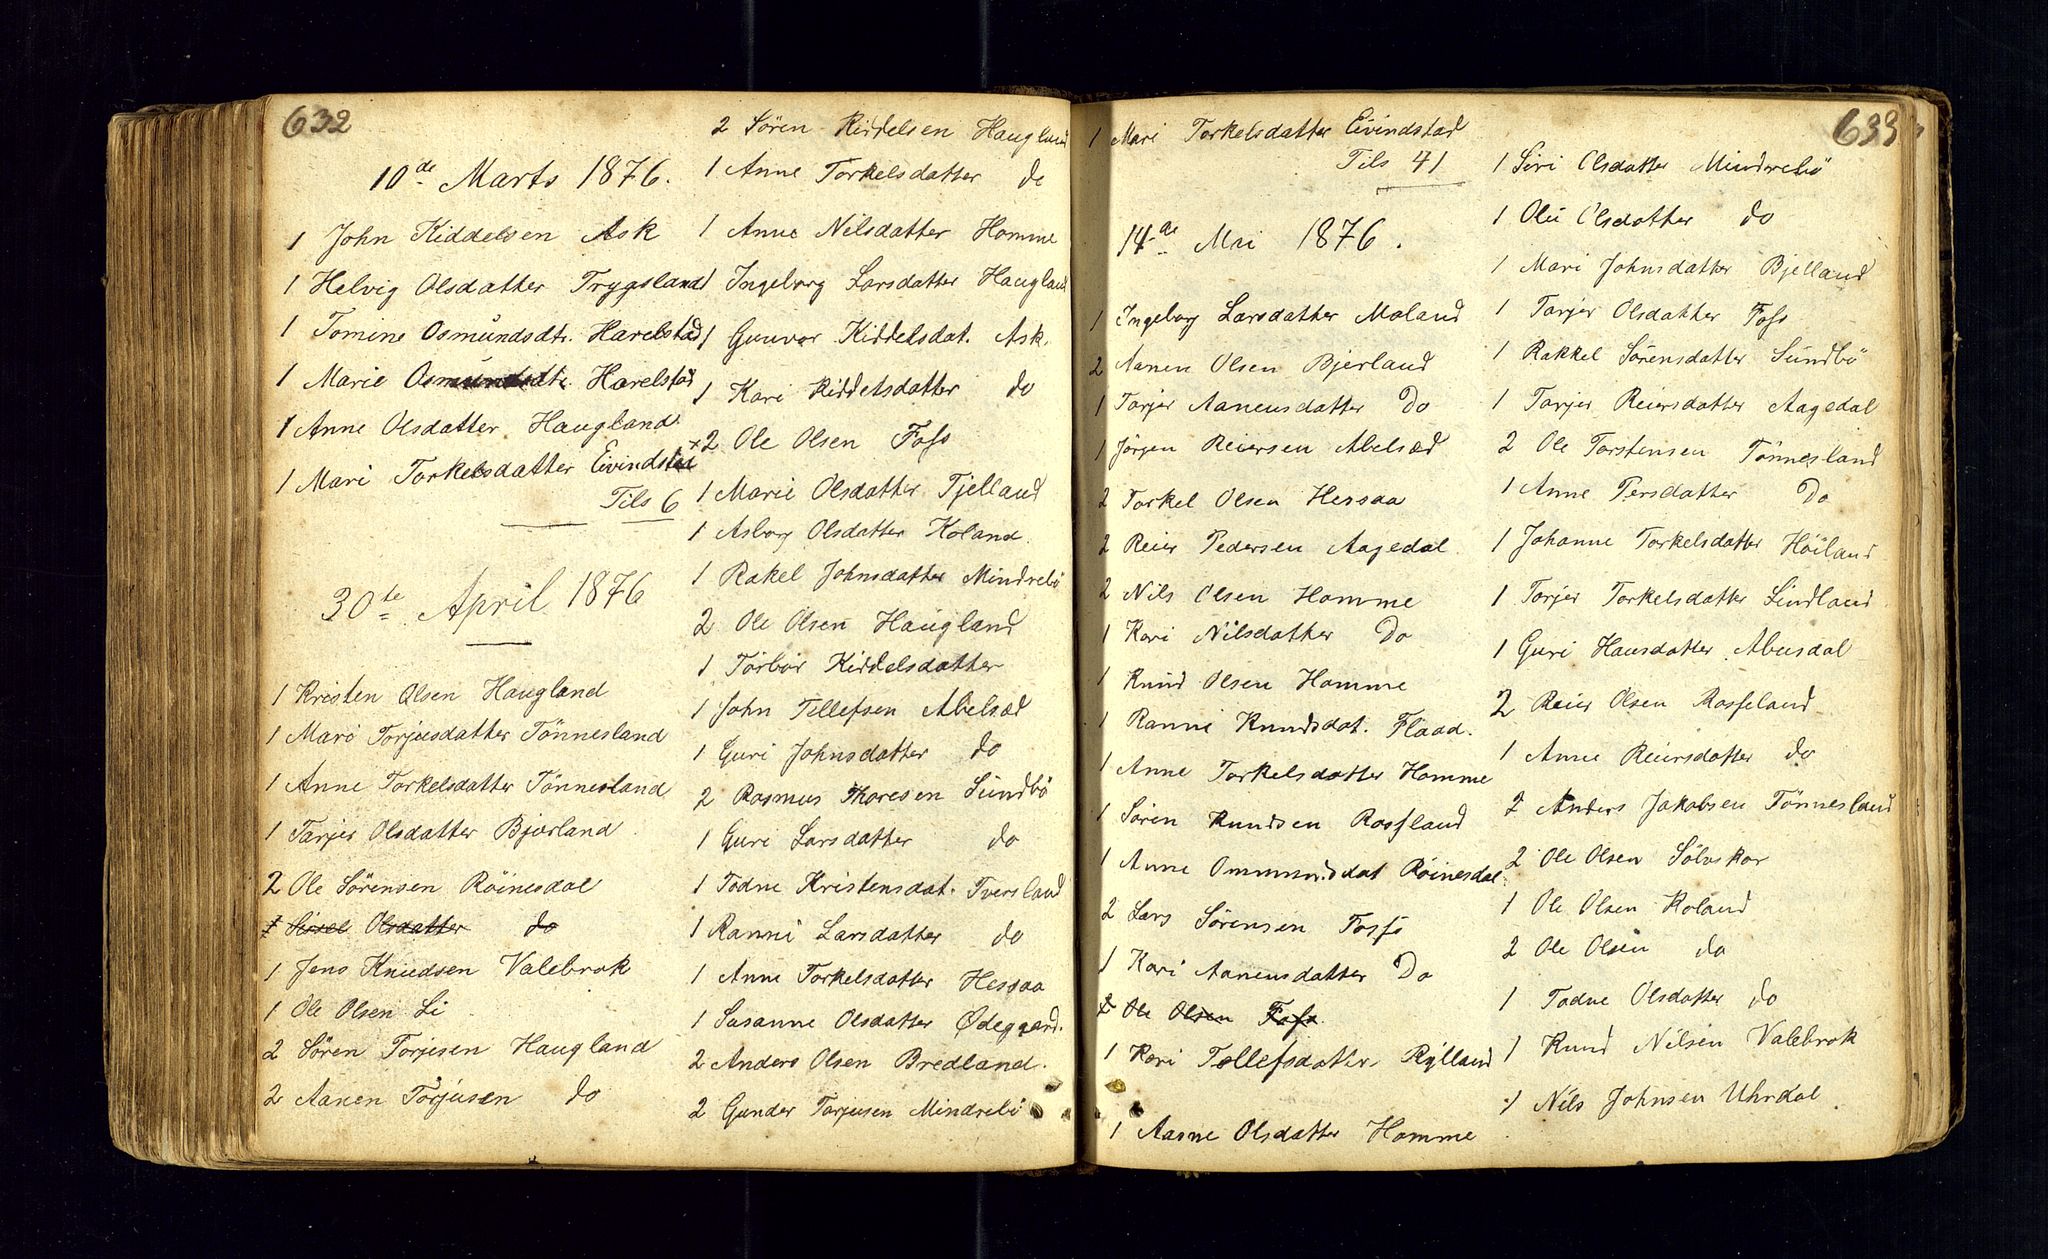 632
10de Marts 1876.
1 John Kiddelsen Ask
1 Helvig Olsdatter Trygsland
1 Tomine Osmundsdtr. Harelstad
1 Marie Osmundsdtr. Harelstad
1 Anne Olsdatter Haugland
1 Mari Torkelsdatter Eivindstad
Tils 6
30te April 1876
1 Kristen Olsen Haugland
1 Mari Torjusdatter Tönnesland
1 Anne Torkelsdatter Tönnesland
1 Tarjer Olsdatter Bjærland
2 Ole Sörensen Röinesdal
1 Sissel Olsdatter do
1 Jens Knudsen Valebrok
1 Ole Olsen Li
2 Sören Torjusen Haugland
2 Aanen Torjusen do
2 Sören Kiddelsen Haugland
1 Anne Torkelsdatter do
1 Anne Nilsdatter Homme
1 Ingeborg Larsdatter Haugland
1 Gunvor Kiddelsdat. Ask.
1 Kari Kiddelsdatter do
x2 Ole Olsen Foss
1 Marie Olsdatter Tjelland
1 Asborg Olsdatter Koland.
1 Rakel Johnsdatter Mindrebö
2 Ole Olsen Haugland
1 Torbör Kiddelsdatter
1 John Tellefsen Abelsæd
1 Guri Johnsdatter do
2 Rasmus Thoresen Sundbö
1 Guri Larsdatter do
1 Todne Kristensdat. Tversland
1 Ranni Larsdatter do
1 Anne Torkelsdatter Hessaa
1 Susanne Olsdatter Ødegaard.
2 Anders Olsen Bredland.
2 Gunder Torjusen Mindrebö
633
1 Mari Torkelsdatter Eivindstad
Tils 41
14de Mai 1876.
1 Ingeborg Larsdatter Moland
2 Aanen Olsen Bjerland
1 Torjer Aanensdatter Do
1 Jörgen Reiersen Abelsæd
2 Torkel Olsen Hessaa
2 Reier Pedersen Aagedal
2 Nils Olsen Homme
1 Kari Nilsdatter Do
1 Knud Olsen Homme
1 Ranni Knudsdat. Flaad.
1 Anne Torkelsdatter Homme
1 Sören Knudsen Rosseland
1 Anne Ommundsdat Röinesdal.
2 Lars Sörensen Foss
1 Kari Aanensdatter Do
2 Ole Olsen Foss.
1 Kari Tellefsdatter Rylland
1 Aasne Olsdatter Homme
1 Siri Olsdatter Mindrebö
1 Oli Olsdatter do
1 Mari Johnsdatter Bjelland
1 Tarjer Olsdatter Foss
1 Rakkel Sörensdatter Sundbö
1 Tarjer Reiersdatter Aagedal
2 Ole Torstensen Tönnesland
1 Anne Persdatter Do
1 Johanne Torkelsdatter Höiland
1 Torjer Torkelsdatter Lindland
1 Guri Hansdatter Abusdal
2 Reier Olsen Rosseland
1 Anne Reiersdatter do
2 Anders Jakobsen Tönnesland
2 Ole Olsen Sölvskar
1 Ole Olsen Koland
2 Ole Olsen do
1 Todne Olsdatter do
1 Knud Nilsen Valebrok
1 Nils Johnsen Uhrdal